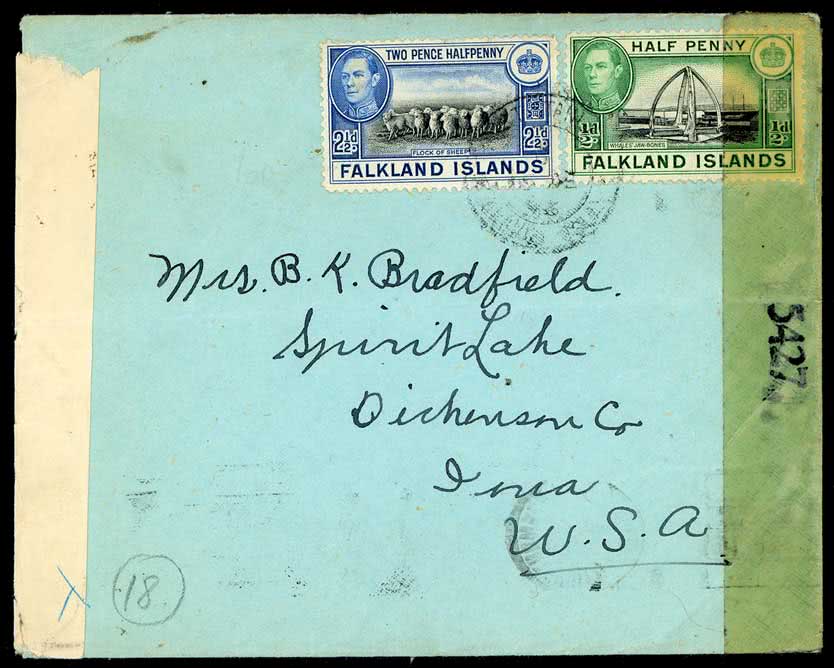 TWO PENCE HALFPENNY
2½D 2½D
FLOCK OF SHEEP
FALKLAND ISLANDS
HALF PENNY
½D ½D
WHALES' JAW-BONES
FALKLAND ISLANDS
Mrs. B. K. Bradfield.
Spirit Lake
Dickenson Co
Iowa
U.S.A
5427
X
18.